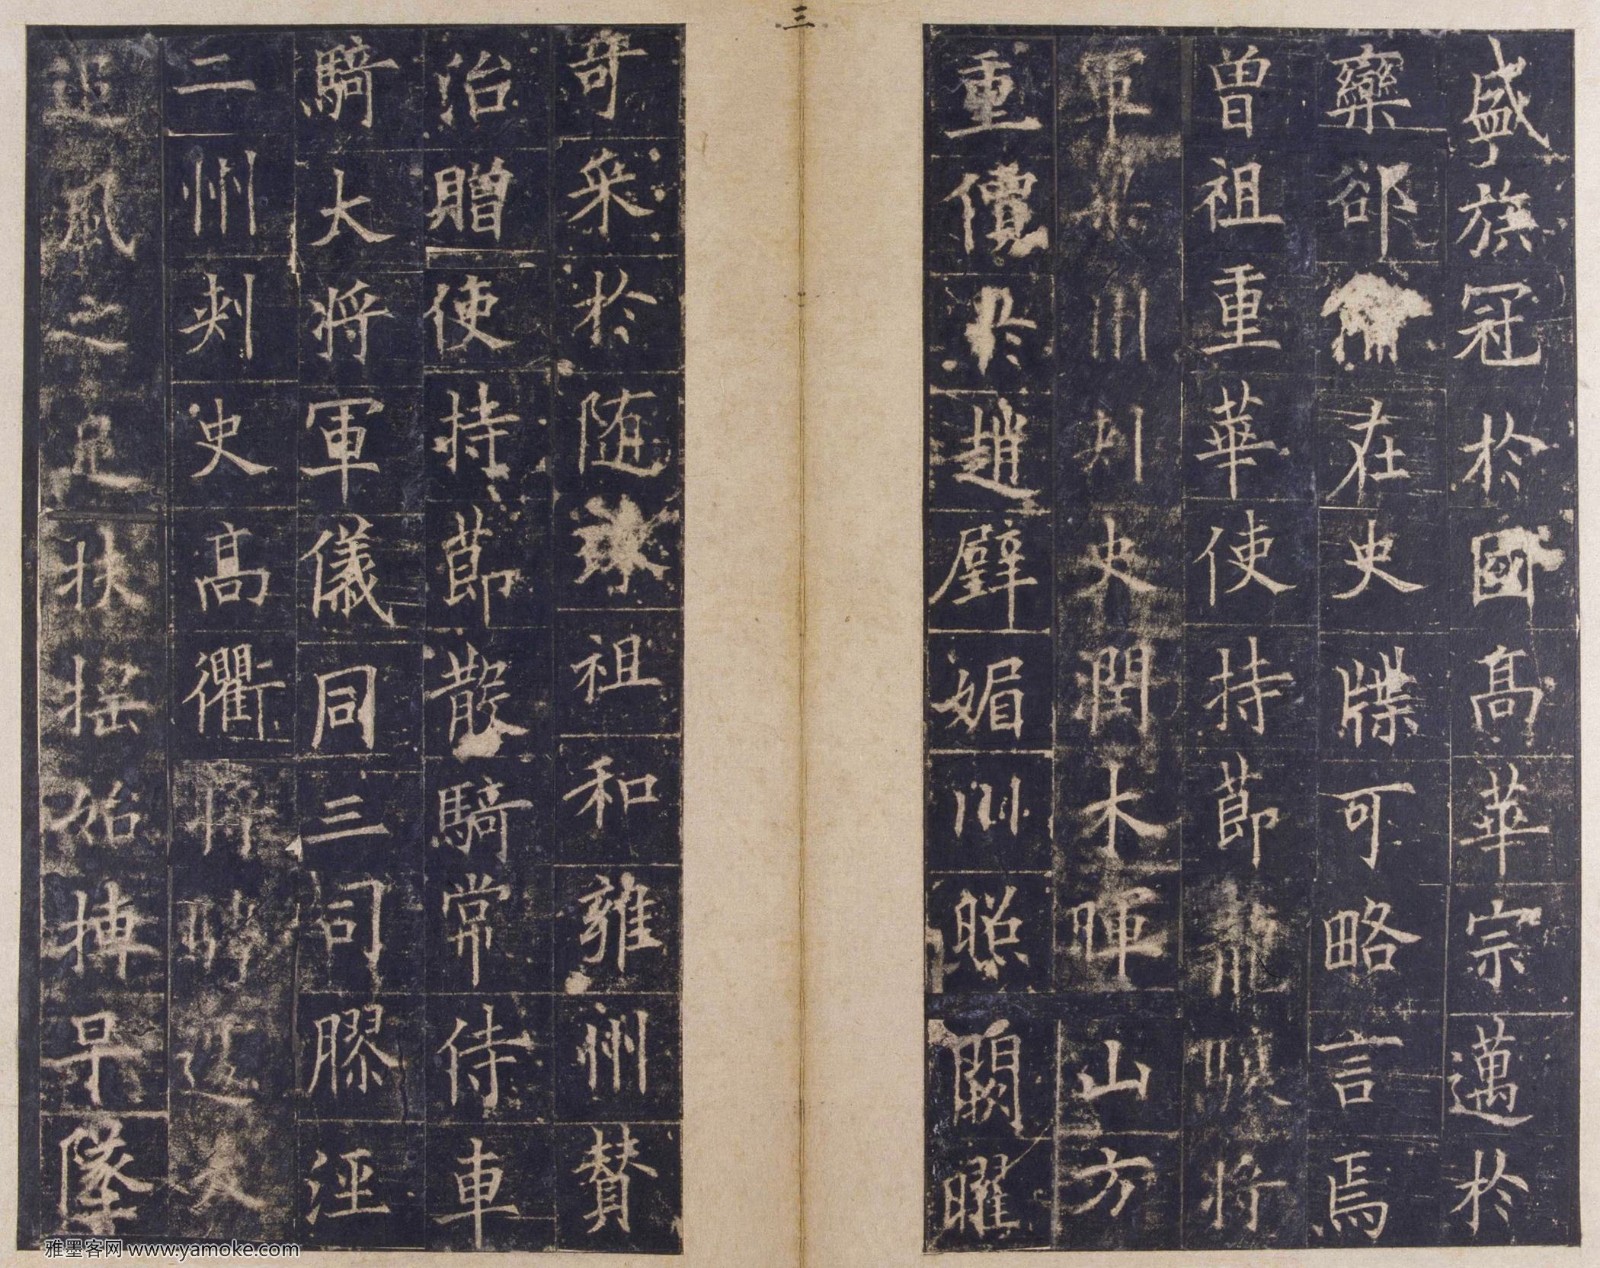 三
盛族冠於國高華宗邁於
欒郤在史牒可略言焉
曾祖重華使持節龍驤將
軍州刺史潤木暉山方
重價於趙璧媚川照闕曜
奇采於随祖和雍州贊
治贈使持節散騎常侍車
騎大將軍儀同三司膠涇
二州刺史高衢將騁夭
追風之足扶搖始摶早墜
雅墨客网 www.yamoke.com